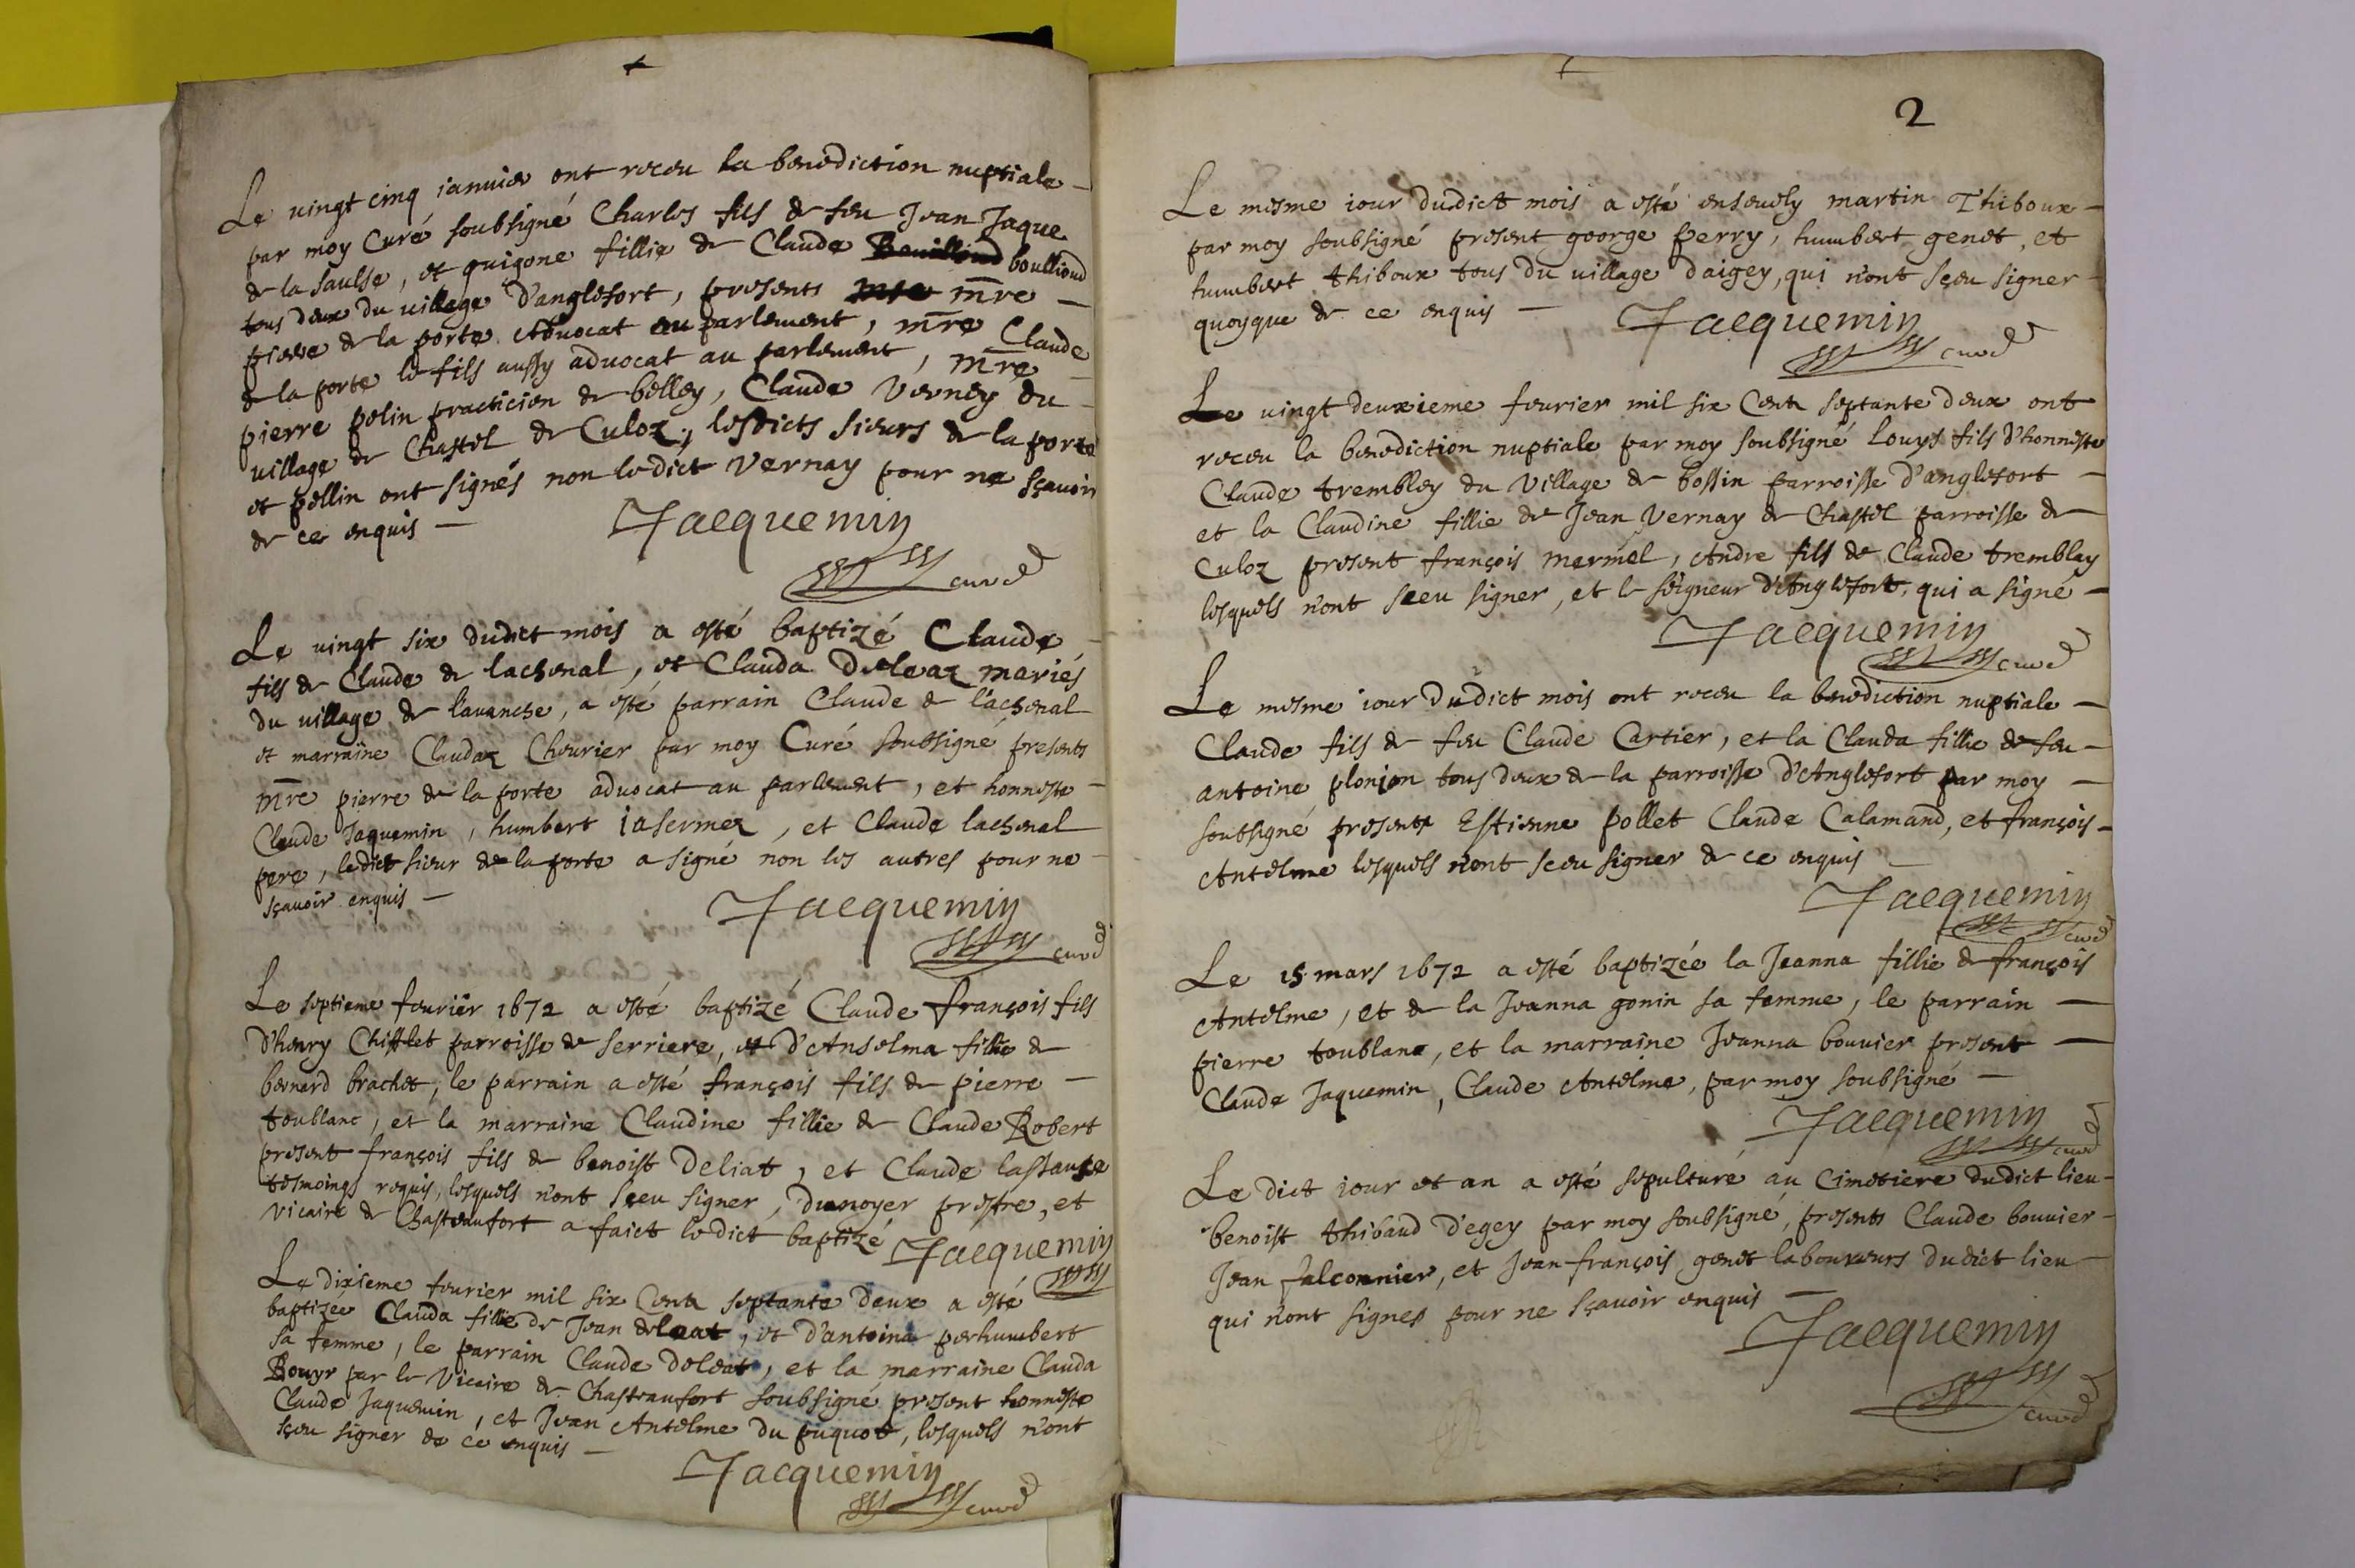 Le vingt cinq ianuier ont receu la benediction nuptiale
par moy Curé soubsigné Charles fils de feu Jean Jaque
de la saulse, et guigone fillie de Claude boullioud
tous deux du village d'anglefort, presents mre
pierre de la porte Aduocat au parlement, mre Claude
de la porte le fils aussy aduocat au parlement, mre
pierre pelin practicien de belley, Claude Verney du
village de Chastel de Culoz, lesdicts sieurs de la porte
et pellin ont signés non ledict Vernay pour ne sçauoir
de ce enquis
Jacquemin
curé
Le vingt six dudict mois a esté baptizé Claude
fils de Claude de lachenal, et Clauda Deleaz mariés
du village de lauanche, a esté parrain Claude de lachenal
et marraine Claudaz Cheurier par moy Curé soubsigné presents
mre pierre de la porte aduocat au parlement, et honneste
Claude Jaquemin, humbert iasermez, et Claude lachenal
pere, ledict sieur de la porte a signé non les autres pour ne
sçauoir enquis
Jacquemin
curé
Le septieme feurier 1672 a esté baptizé Claude françois fils
d'henry Chifflet parroisse de serriere, et d'Anselma fillie de
bernard brachet, le parrain a esté françois fils de pierre
toublanc, et la marraine Claudine fillie de Claude Robert
present françois fils de benoist Deliat, et Claude lassausse
tesmoings requis, lesquels n'ont sceu signer, dunoyer prestre, et
vicaire de Chasteaufort a faict ledict baptizé
Jacquemin
Le dixieme feurier mil six Cents septante deux a esté
baptizée Clauda fillie de Jean deleat, et d'antoina perhumbert
sa femme, le parrain Claude deleat, et la marraine Clauda
Rouyr par le Vicaire de Chasteaufort soubsigné present honneste
Claude Jaquemin, et Jean Antelme du puquot, lesquels n'ont
sçeu signer de ce enquis
Jacquemin
curé
2
Le mesme iour dudict mois a esté enseuely martin Thiboux
par moy soubsigné present george perry, humbert genet, et
humbert thiboux tous du village daigey, qui n'ont sçeu signer
quoyque de ce enquis
Jacquemin
curé
Le vingt deuxieme feurier mil six Cents septante deux ont
receu la benediction nuptiale par moy soubsigné Louys fils d'honneste
Claude trembley du village de bossin parroisse d'anglefort
et la Claudine fillie de Jean Vernay de Chastel parroisse de
Culoz present françois mermel, Andre fils de Claude tremblay
lesquels n'ont sceu signer, et le seigneur d'Anglefort, qui a signé
Jacquemin
curé
Le mesme iour dudict mois ont receu la benediction nuptiale
Claude fils de feu Claude Cartier, et la Clauda fillie de feu
antoine plonjon tous deux de la parroisse d'Anglefort par moy
soubsigné presents Estienne pollet Claude Calamand, et françois
Antelme lesquels n'ont sceu signer de ce enquis
Jacquemin
curé
Le 15 mars 1672 a esté baptizée la Jeanna fillie de françois
Antelme, et de la Jeanna gonin sa femme, le parrain
pierre toublanc, et la marraine Jeanna bouuier present
Claude Jaquemin, Claude Antelme, par moy soubsigné
Jacquemin
curé
Le dict iour et an a esté sepulturé au Cimetiere dudict lieu
benoist thibaud d'egey par moy soubsigné, presents Claude bouuier
Jean falconnier, et Jean françois genet laboureurs dudict lieu
qui n'ont signés pour ne sçauoir enquis
Jacquemin
curé